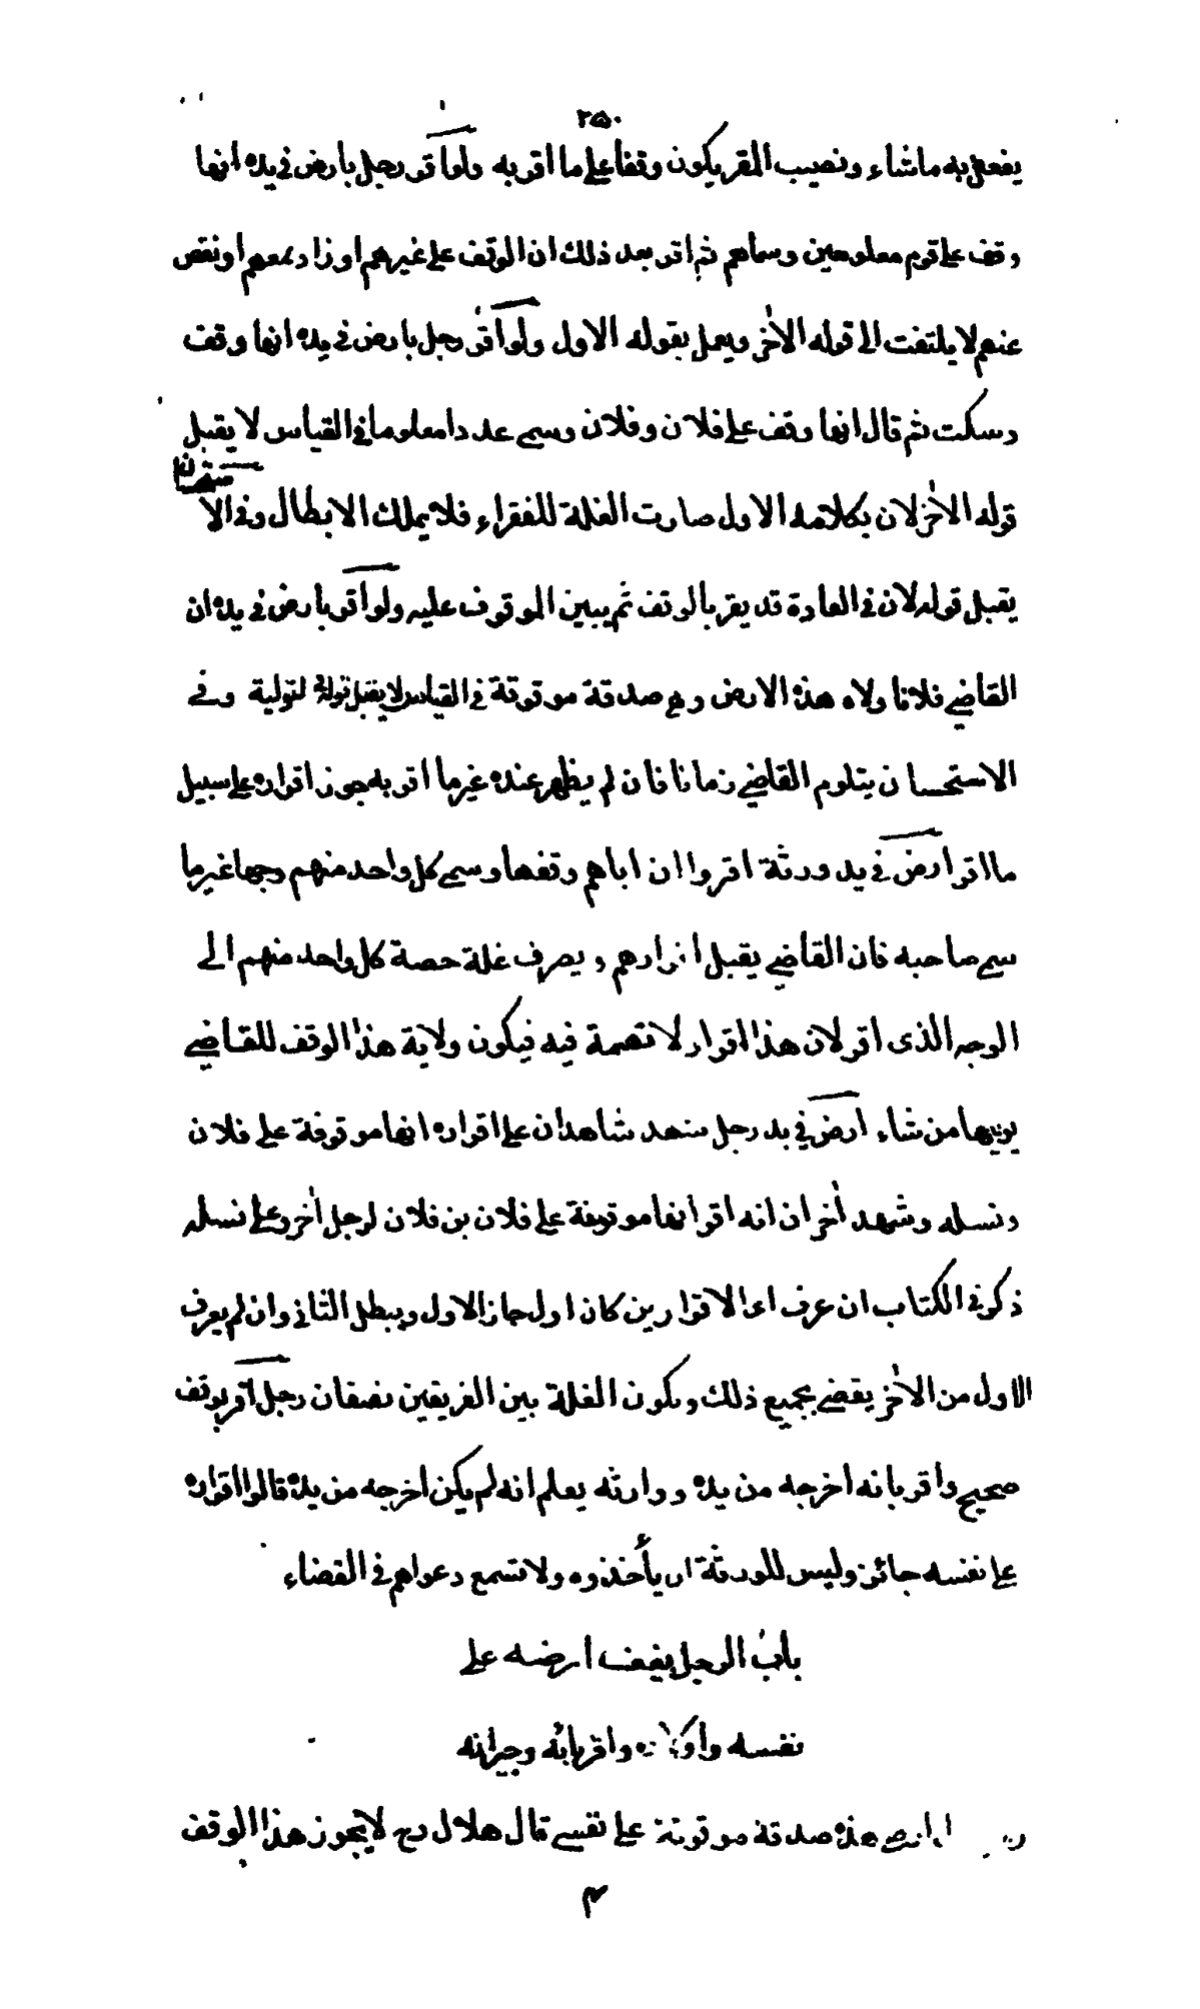 ۲۵۰
يفعل به ماشاء ونصيب المقر يكون وقفا على ما اقر به ولو اقر رجل بارض في يده انها
وقف على قوم معلومين وسماهم ثم اقر بعد ذلك ان الوقف على غيرهم او زاد معهم او نقص
عنهم لا يلتفت الى قوله الاٰخر ويعمل بقوله الاول ولو اقر رجل بارض في يده انها وقف
وسكت ثم قال انها وقف على فلان وفلان وسمى عددا معلوما في القياس لا يقبل
قوله الاٰخر لان بكلامه الاول صارت الغلة للفقراء فلا يملك الابطال وفي الا
يقبل قوله لان في العادة قد يقر بالوقف ثم يبين الموقوف عليه ولو اقر بارض في يده ان
القاضي فلانا ولاه هذه الارض وهي صدقة موقوفة في القياس لا يقبل قوله في لتولية وفي
الاستحسان يتلوم القاضي زمانا فان لم يظهر عنده غير ما اقر به جوز اقراره على سبيل
ما اقر ارض في يد ورثة اقروا ان اباهم وقفها وسمى كل واحد منهم وجها غير ما
سمى صاحبه فان القاضي يقبل اقرارهم ويصرف غلة حصة كل واحد منهم الى
الوجه الذى اقر لان هذا اقرار لا تهمة فيه فيكون ولاية هذا الوقف للقاضي
يوليها من شاء ارض في يد رجل شهد شاهدان على اقراره انها موقوفة على فلان
ونسله وشهد اٰخران انه اقر انها موقوفة على فلان بن فلان لرجل اٰخر وعلى نسله
ذكر في الكتاب ان عرف اى الاقرارين كان اول جاز الاول ويبطل الثاني وان لم يعرف
الاول من الاٰخر يقضي بجميع ذلك ويكون الغلة بين الفريقين نصفان رجل اقر بوقف
صحيح واقر بانه اخرجه من يده ووارثه يعلم انه لم يكن اخرجه من يده قالوا اقراره
على نفسه جائز وليس للورثة ان يأخذوه ولا تسمع دعواهم في القضاء
باب الرجل يقف ارضه على
نفسه واولاده واقربائه وجيرانه
ارضي هذه صدقة موقوفة على نفسي قال هلال رح لا يجوز هذا الوقف